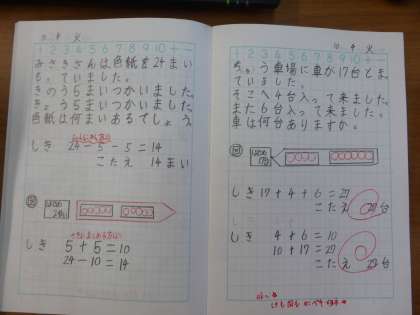 9 火
1 2 3 4 5 6 7 8 9 10 + −
みさきさんは色紙を24まい
もっていました。
きのう5まいつかいました。
きょう5まいつかいました。
色紙は何まいあるでしょう。
しき 24−5−5=14
こたえ 14まい
図
はじめ
24まい
しき 5+5=10
24−10=14
9 火
1 2 3 4 5 6 7 8 9 10 + −
ちゅう車場に車が17台とま
っていました。
そこへ4台入って来ました。
また6台入って来ました。
車は何台ありますか。
図
はじめ
17台
しき 17+4+6=27
こたえ 27台
しき 4+6=10
10+17=27
こたえ 27台